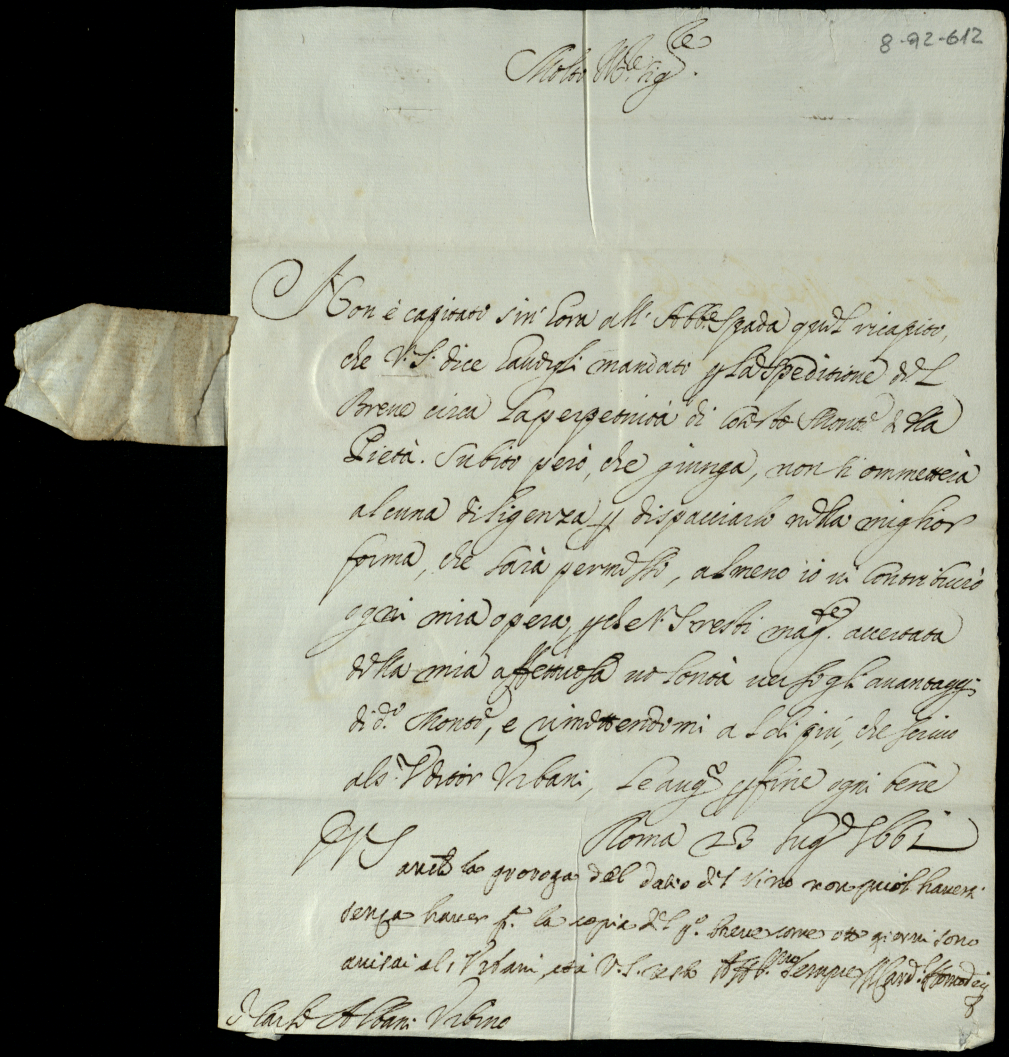 8-92-612
Molto Ill.re Sig.re
Non è capitato sin' hora all' Abb.e Spada quel ricapito,
che V.S. dice havergli mandato p la Speditione del
Breve circa la perpetuità di cotesto Monte della
Pietà. Subito però, che giunga, non si ommetterà
alcuna diligenza p dispacciarlo nella miglior
forma, che sarà permesso, almeno io vi contribuirò
ogni mia opera, p che V.S. resti mag.te accertata
della mia affettuosa volontà verso gli avantaggi
di d.o Monte, e rimettendomi al di più, che scrivo
al S.r Uditor Urbani, le aug.o p fine ogni bene
Roma 23 lug.o 1661
V.S.
la proroga del datio del vino non puol haversi
senza haver p.a la copia del p.o breve come otto giorni sono
avisai al S. Urbani, et a V.S. resto Aff.mo sempre Il Card. Homodei
S. Carlo Albani Urbino